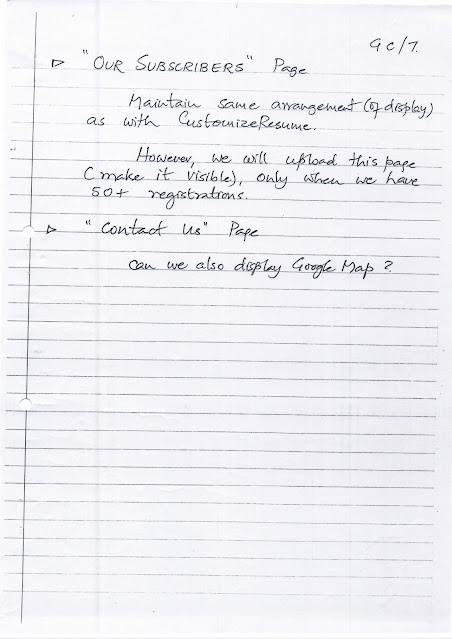 GC/7.
▷ "OUR SUBSCRIBERS" Page
Maintain same arrangement (of display)
as with CustomizeResume.
However, we will upload this page
(make it visible), only when we have
50+ registrations.
▷ "Contact Us" Page
Can we also display Google Map?